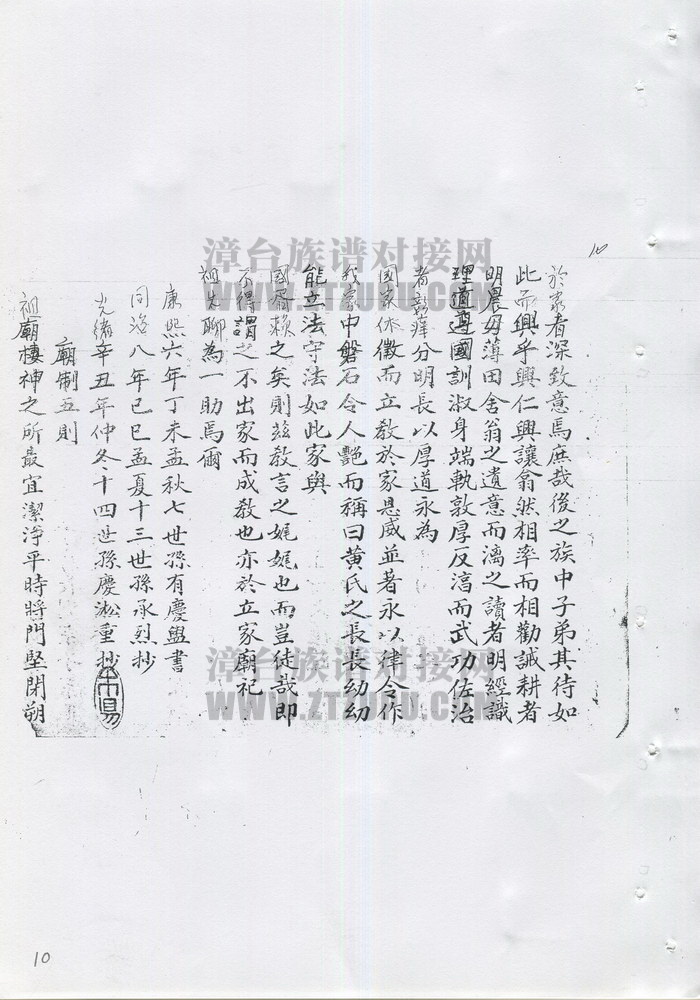 10
於家者深致意焉庶哉後之族中子弟其待如
此而興乎興仁興讓翕然相率而相勸誠耕者
明農毋薄田舍翁之遺意而漓之讀者明經識
理道遵國訓淑身端執敦厚反漓而武功佐治
者彰癉分明長以厚道永為
國家休徵而立教於家恩威並著永以律令作
我家中磐石令人艷而稱曰黃氏之長長幼幼
能立法守法如此家與
國胥賴之矣則茲教言之娓娓也而豈徒哉即
不得謂之不出家而成教也亦於立家廟祀
祖先聊為一助焉爾
康熙六年丁未孟秋七世孫有慶盥書
同治八年己巳孟夏十三世孫承烈抄
光緒辛丑年仲冬十四世孫慶淞重抄
廟制五則
祖廟棲神之所最宜潔淨平時將門堅閉朔
漳台族谱对接网
WWW.ZTZUPU.COM
漳台族谱对接网
WWW.ZTZUPU.COM
10